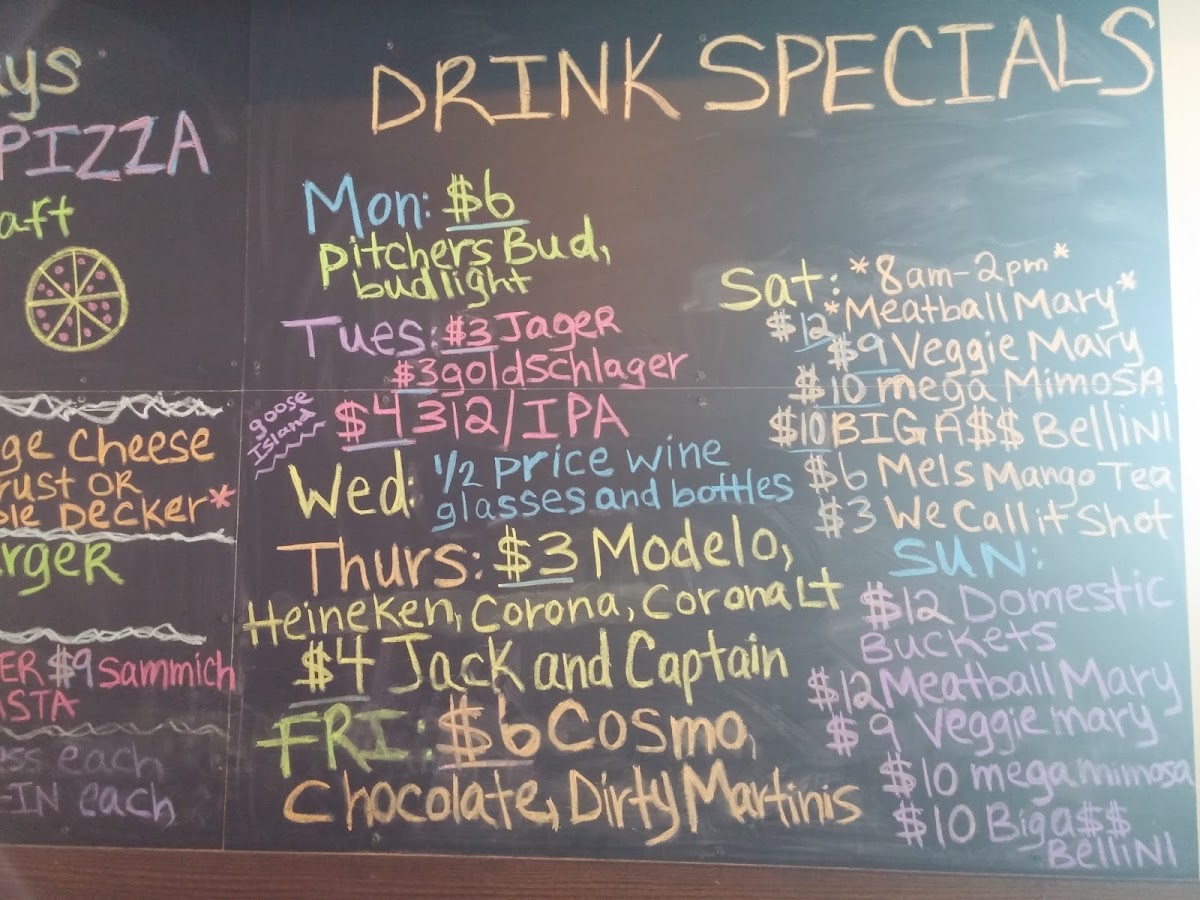 PIZZA
DRINK SPECIALS
Mon: $6
pitchers Bud,
bud light
Tues: $3 Jager
$3 goldschlager
goose
Island
$4 312/IPA
Wed: 1/2 price wine
glasses and bottles
Thurs: $3 Modelo,
Heineken, Corona, Corona Lt
$4 Jack and Captain
FRI: $6 Cosmo,
Chocolate, Dirty Martinis
Sat: *8am-2pm*
$12 *Meatball Mary*
$9 Veggie Mary
$10 mega Mimosa
$10 BIG A$$ BelliNI
$6 Mels Mango Tea
$3 We Call it Shot
SUN:
$12 Domestic
Buckets
$12 Meatball Mary
$9 Veggie mary
$10 mega mimosa
$10 Big a$$
BelliNI
Cheese
OR
Decker*
$9 sammich
each
-IN each